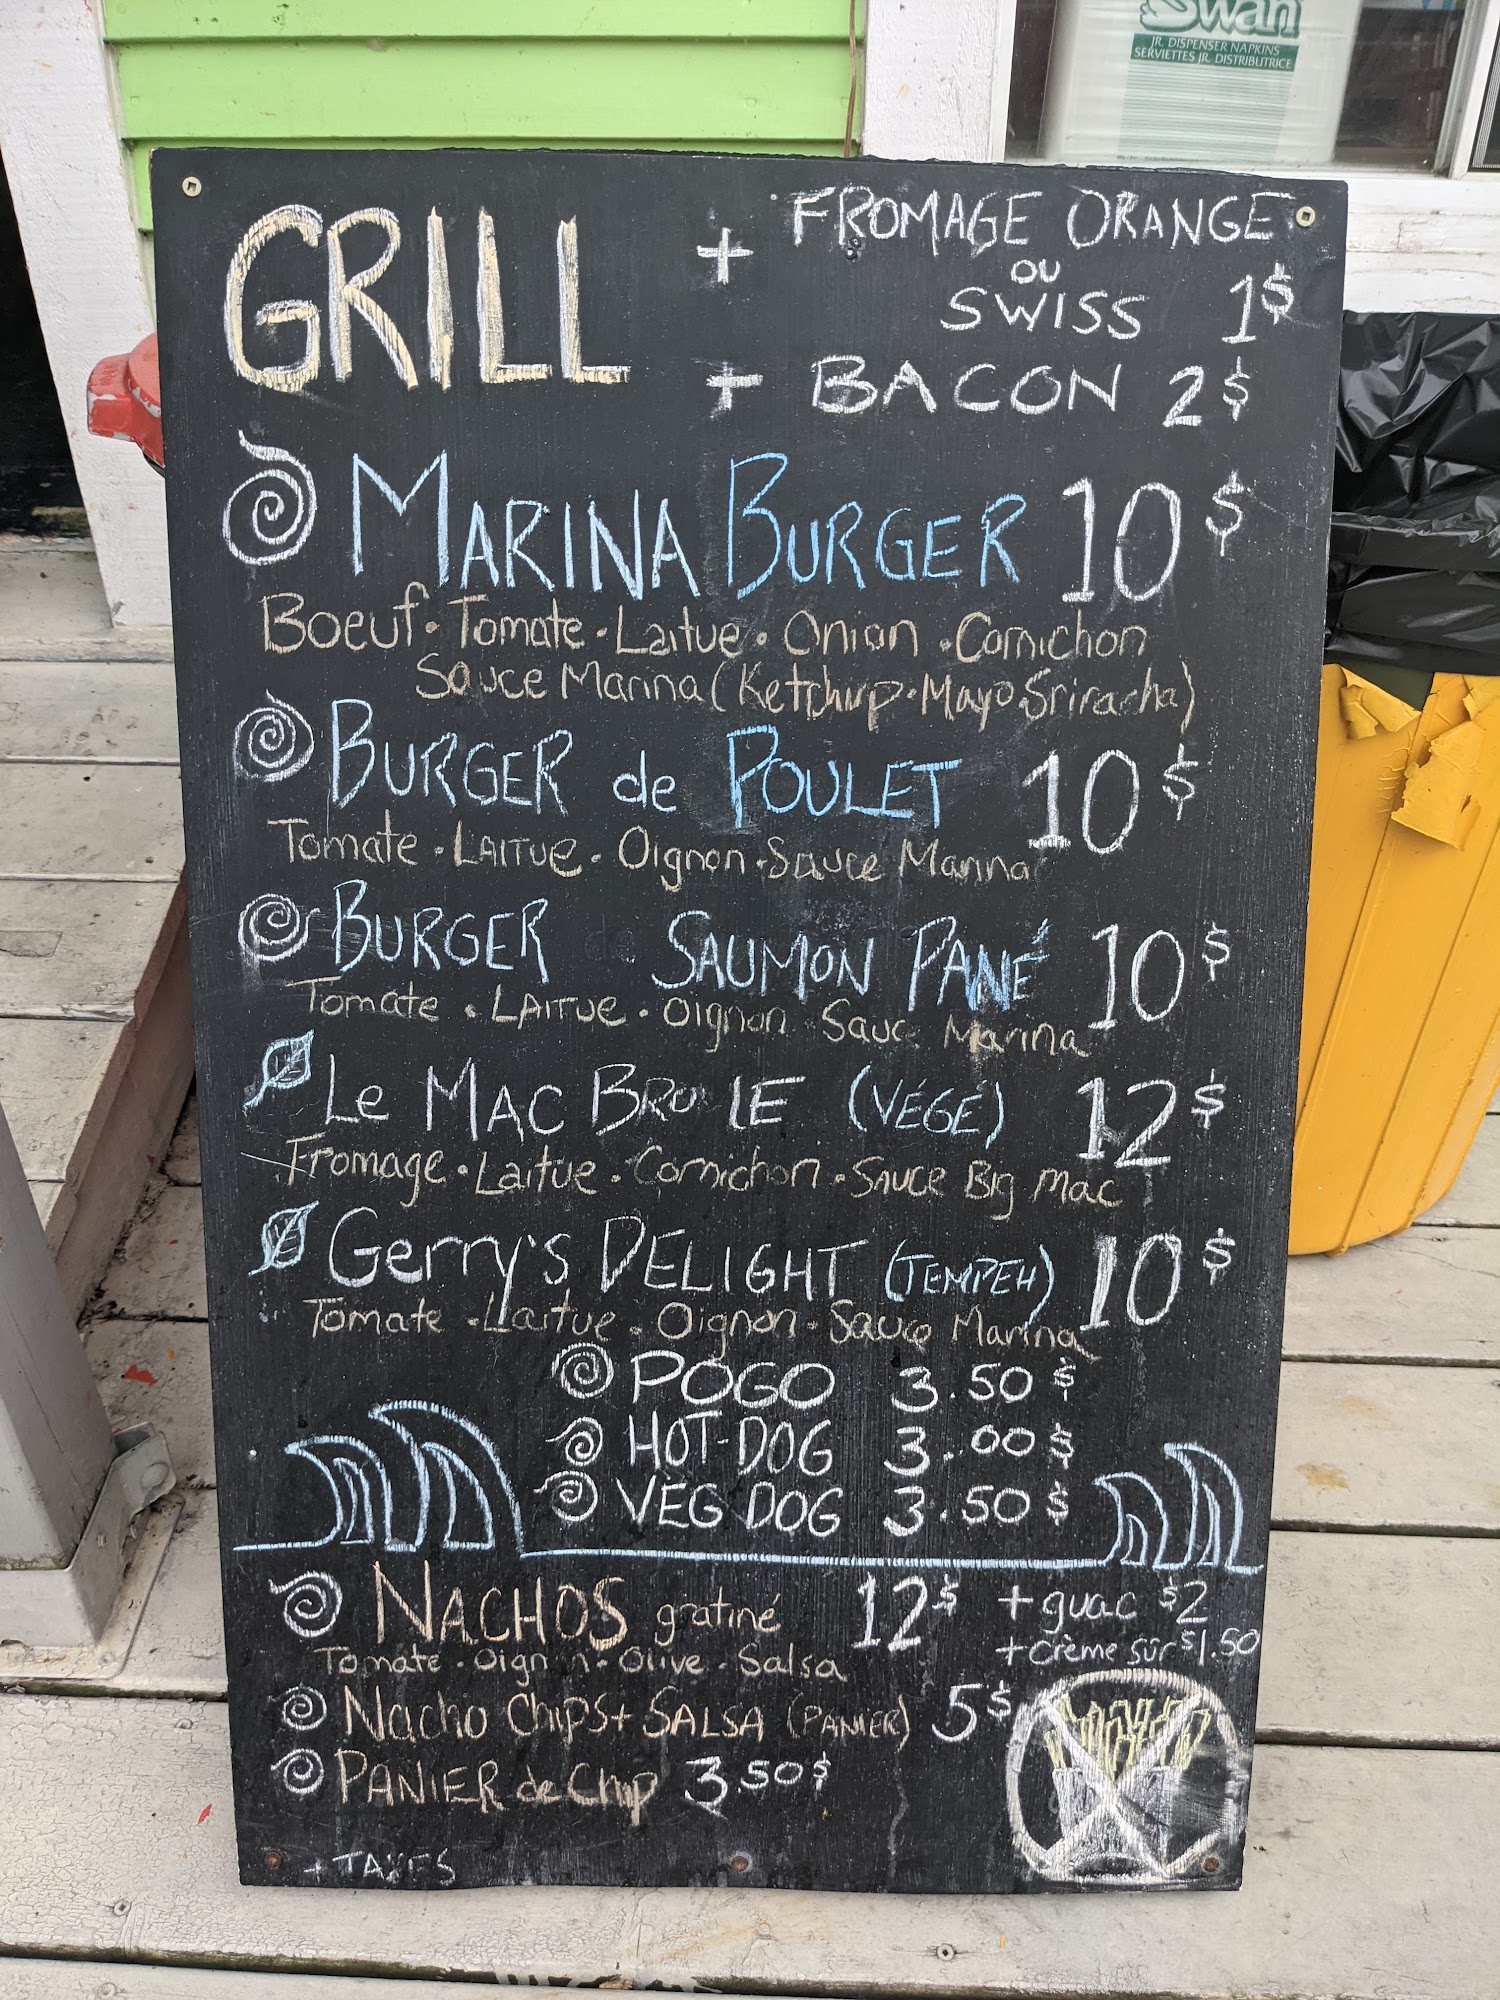 Swan
JR. DISPENSER NAPKINS
SERVIETTES JR. DISTRIBUTRICE
GRILL
+ FROMAGE ORANGE
OU
SWISS 1$
+ BACON 2$
MARINA BURGER 10$
Boeuf • Tomate • Laitue • Onion • Cornichon
Sauce Marina (Ketchup • Mayo Sriracha)
BURGER de POULET 10$
Tomate • LAITUE • Oignon • Sauce Marina
BURGER de SAUMON PANÉ 10$
Tomate • LAITUE • Oignon Sauc Marina
Le MAC BRULE (VÉGÉ) 12$
Fromage • Laitue • Cornichon • SAUCE BIG Mac
Gerry's DELIGHT (TEMPEH) 10$
Tomate • Laitue • Oignon • Sauce Marina
POGO 3.50$
HOT-DOG 3.00$
VEG DOG 3.50$
NACHOS gratiné 12$
Tomate • Oign n • Olive • Salsa
+ guac $2
+ crème sûr $1.50
Nacho Chips + SALSA (PANIER) 5$
PANIER de Chip 3.50$
+ TAXES